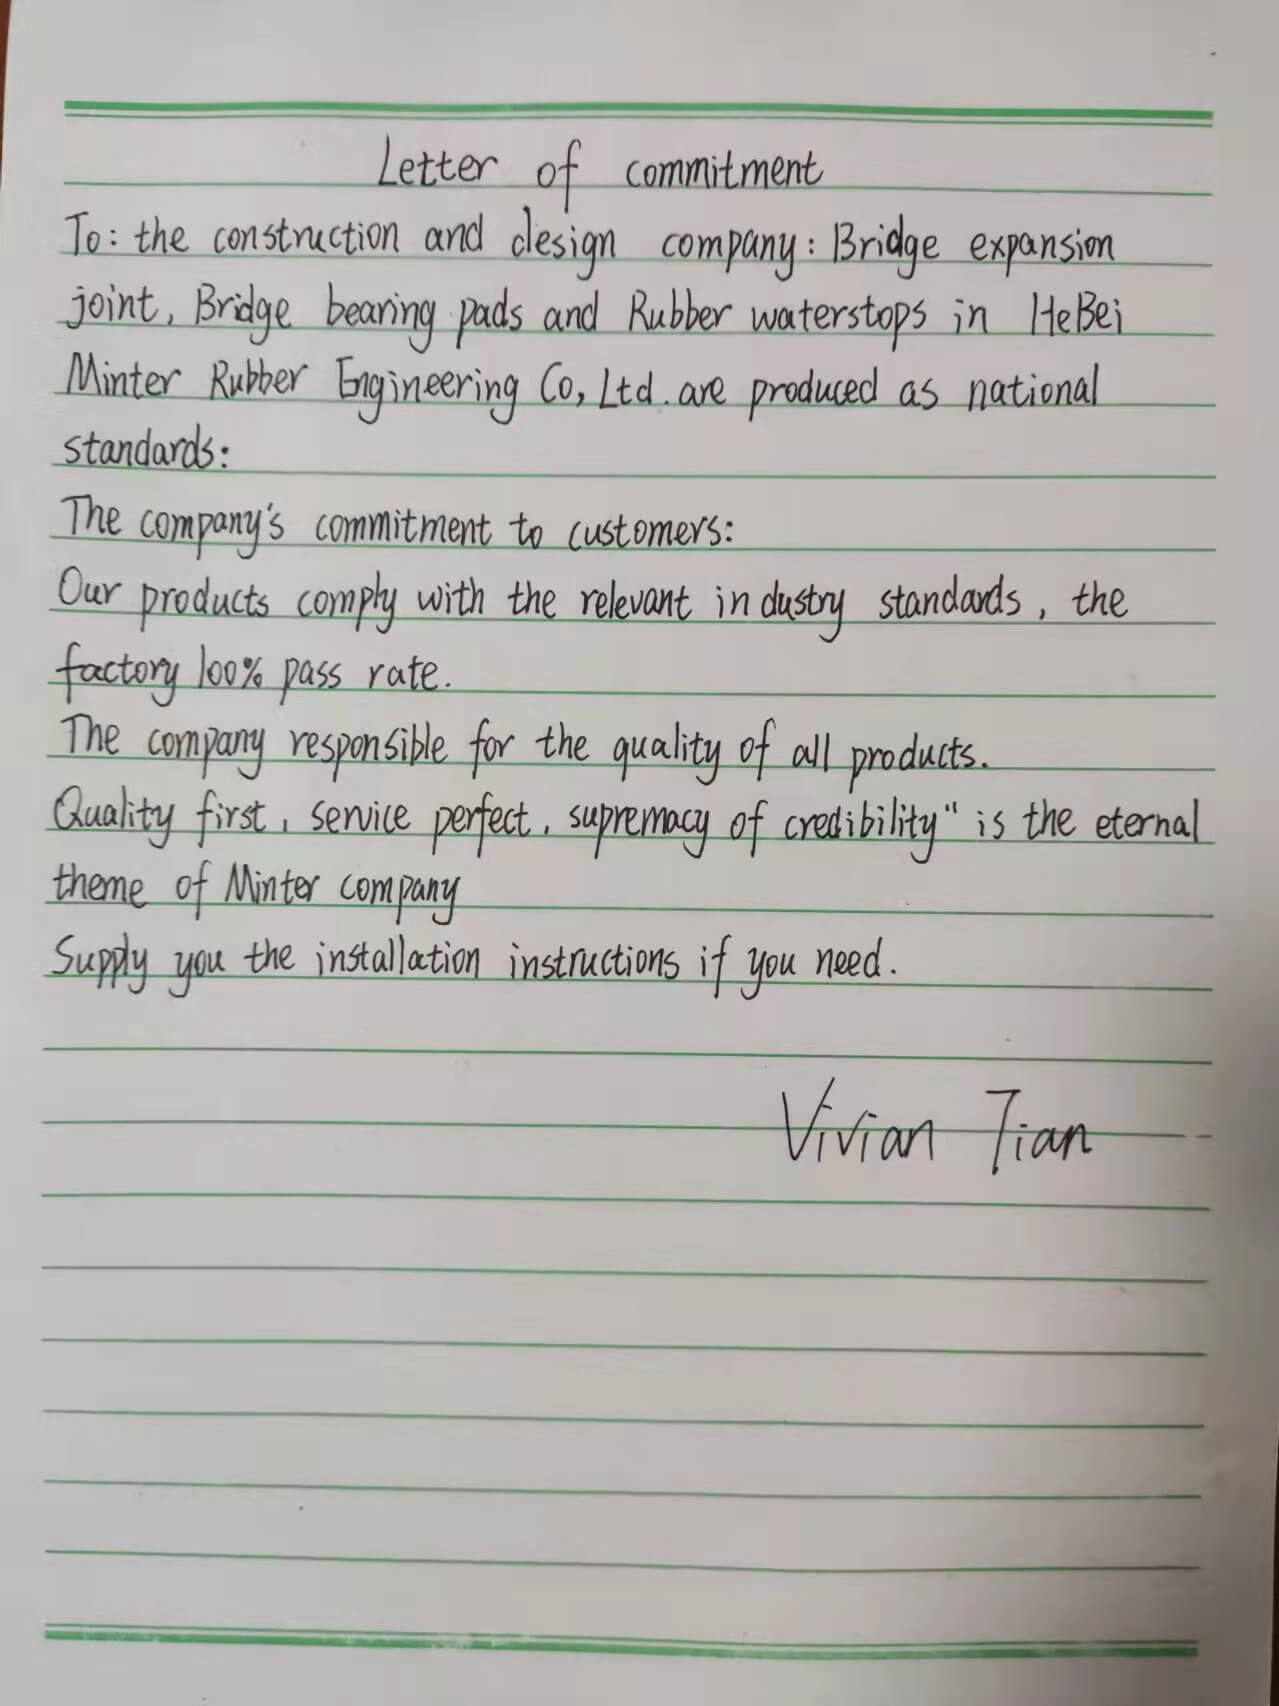 Letter of commitment
To: the construction and design company: Bridge expansion
joint, Bridge bearing pads and Rubber waterstops in HeBei
Minter Rubber Engineering Co, Ltd. are produced as national
standards:
The company's commitment to customers:
Our products comply with the relevant industry standards, the
factory 100% pass rate.
The company responsible for the quality of all products.
Quality first, service perfect, supremacy of credibility" is the eternal
theme of Minter company
Supply you the installation instructions if you need.
Vivian Tian